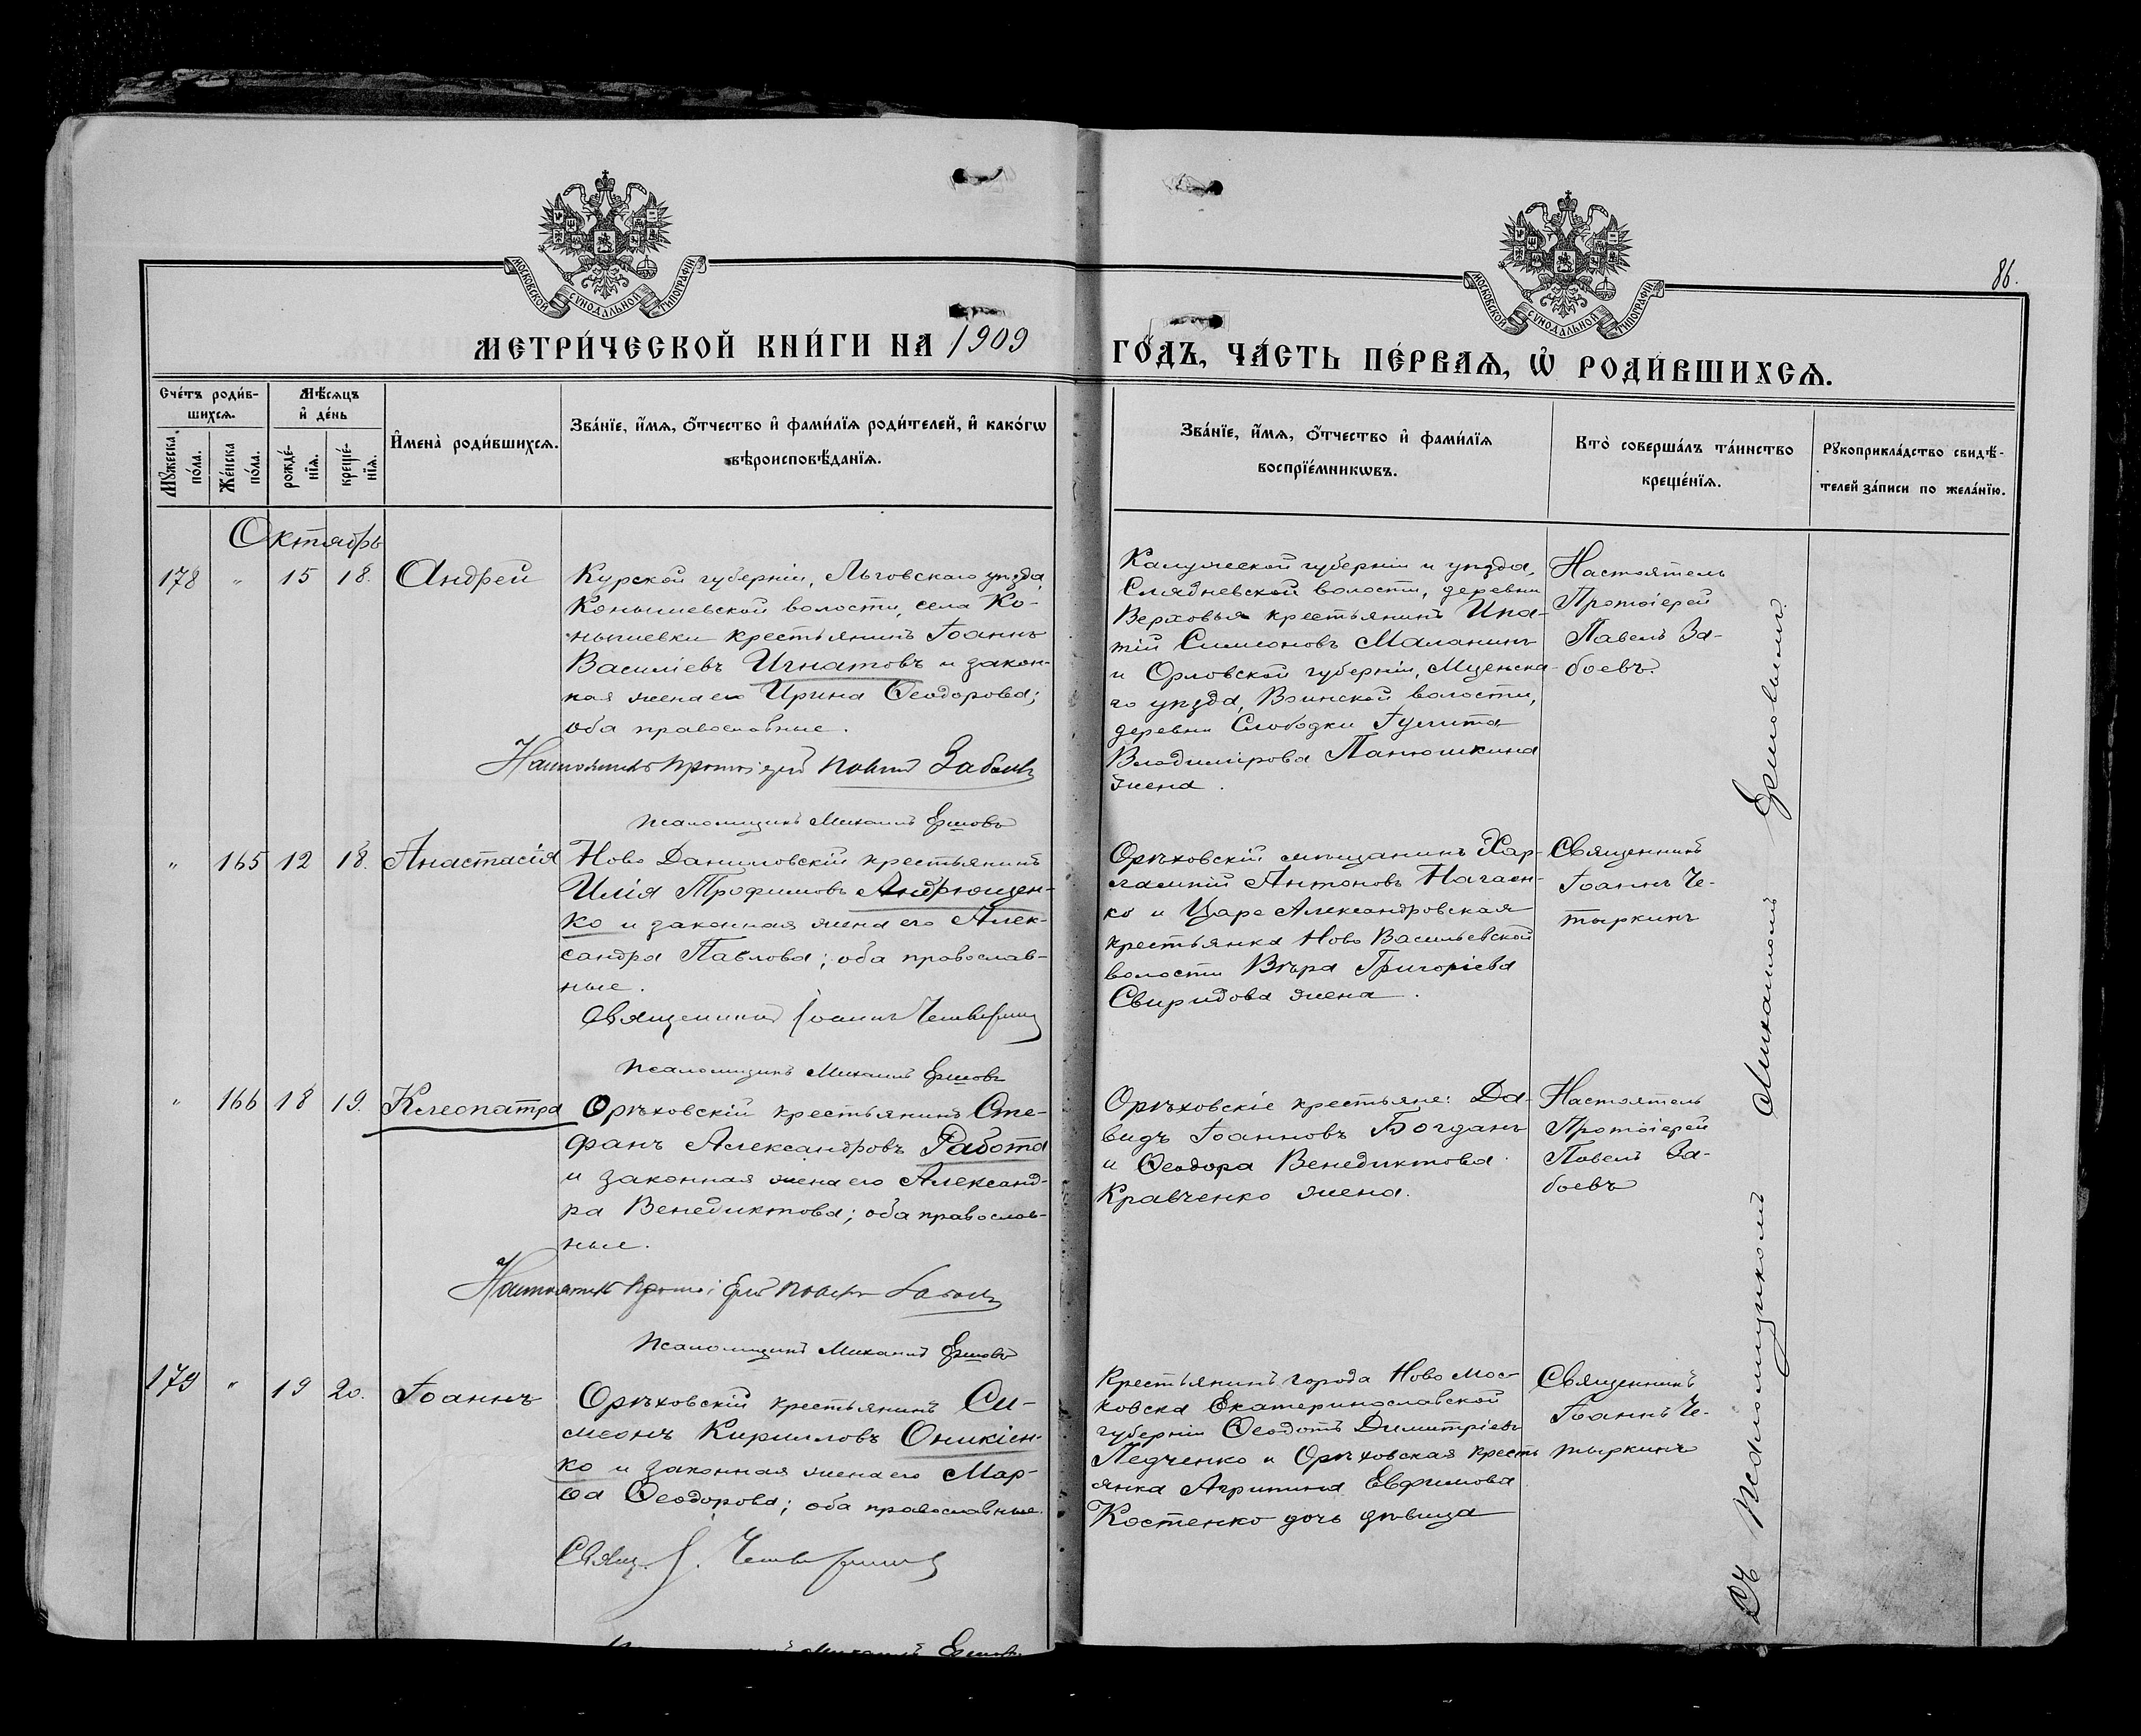 86.
МОСКОВСКОЙ СУНОДАЛЬНОЙ ТИПОГРАФІИ
МОСКОВСКОЙ СУНОДАЛЬНОЙ ТИПОГРАФІИ
МЕТРИ́ЧЕСКОЙ КНИ́ГИ НА 1909 ГО́ДЪ, ЧА́СТЬ ПЕ́РВАѦ, Ѡ҆ РОДИ́ВШИХСѦ.
Сче́тъ роди́в-
шихсѧ.
Мѣ́сѧцъ
и҆ де́нь
Мꙋжеска
по́ла.
Же́нска
по́ла.
рожде́-
нїѧ.
креще́-
нїѧ.
И҆мена̀ роди́вшихсѧ.
Зва́нїе, и҆́мѧ, ѻ҆́тчество и҆ фами́лїѧ роди́телей, и҆ како́гѡ
вѣроисповѣ́данїѧ.
Зва́нїе, и҆́мѧ, ѻ҆́тчество и҆ фами́лїѧ
воспрїе́мникѡвъ.
Кто̀ соверша́лъ та́инство
креще́нїѧ.
Рꙋкоприкла́дство свидѣ́-
телей за́писи по жела́нїю.
Октябрь
178 " 15 18. Андрей
Курской губерніи, Льговскаго уѣзда,
Конышевской волости, села Ко-
нышевки крестьянинъ Іоаннъ
Василіевъ Игнатовъ и закон-
ная жена его Ирина Ѳеодорова;
оба православные.
Настоятель Протоіерей Павелъ Забоевъ
Псаломщикъ Михаилъ Ершовъ
Калужской губерніи и уѣзда,
волости, деревни
Верховья крестьянинъ Ипа-
тій Симеоновъ Маланинъ
и Орловской губерніи, Мценска-
го уѣзда, Воинской волости,
деревни Слободки
Владимірова Панюшкина
жена.
Настоятель
Протоіерей
Павелъ За-
боевъ.
" 165 12 18. Анастасія
Ново Даниловскій крестьянинъ
Илія Трофимовъ Андрющен-
ко и законная жена его Алек-
сандра Павлова; оба православ-
ные.
Священникъ Іоаннъ Четыркинъ
Псаломщикъ Михаилъ Ершовъ
Орѣховскій мѣщанинъ Хар-
лампій Антоновъ Нагаен-
ко и Царе Александровская
крестьянка Ново Васильевской
волости Вѣра Григоріева
Свиридова жена.
Священникъ
Іоаннъ Че-
тыркинъ
" 166 18 19. Клеопатра
Орѣховскій крестьянинъ Сте-
фанъ Александровъ Работа
и законная жена его Александ-
ра Венедиктова; оба православ-
ные.
Настоятель Протоіерей Павелъ Забоевъ
Псаломщикъ Михаилъ Ершовъ
Орѣховскіе крестьяне: Да-
видъ Іоанновъ Богданъ
и Ѳеодора Венедиктова
Кравченко жена.
Настоятель
Протоіерей
Павелъ За-
боевъ
179 " 19 20. Іоаннъ
Орѣховскій крестьянинъ Си-
меонъ Кирилловъ Оникіен-
ко и законная жена его Мар-
ѳа Ѳеодорова; оба православные.
Свящ. І. Четыркинъ
Михаилъ Ершовъ
Крестьянинъ города Ново Мос-
ковска Екатеринославской
губерніи Ѳеодотъ Димитріевъ
Педченко и Орѣховская кресть
янка Агрипина Евфимова
Костенко дочь дѣвица
Священникъ
Іоаннъ Че-
тыркинъ
Съ Псаломщикомъ Михаиломъ Ершовымъ.